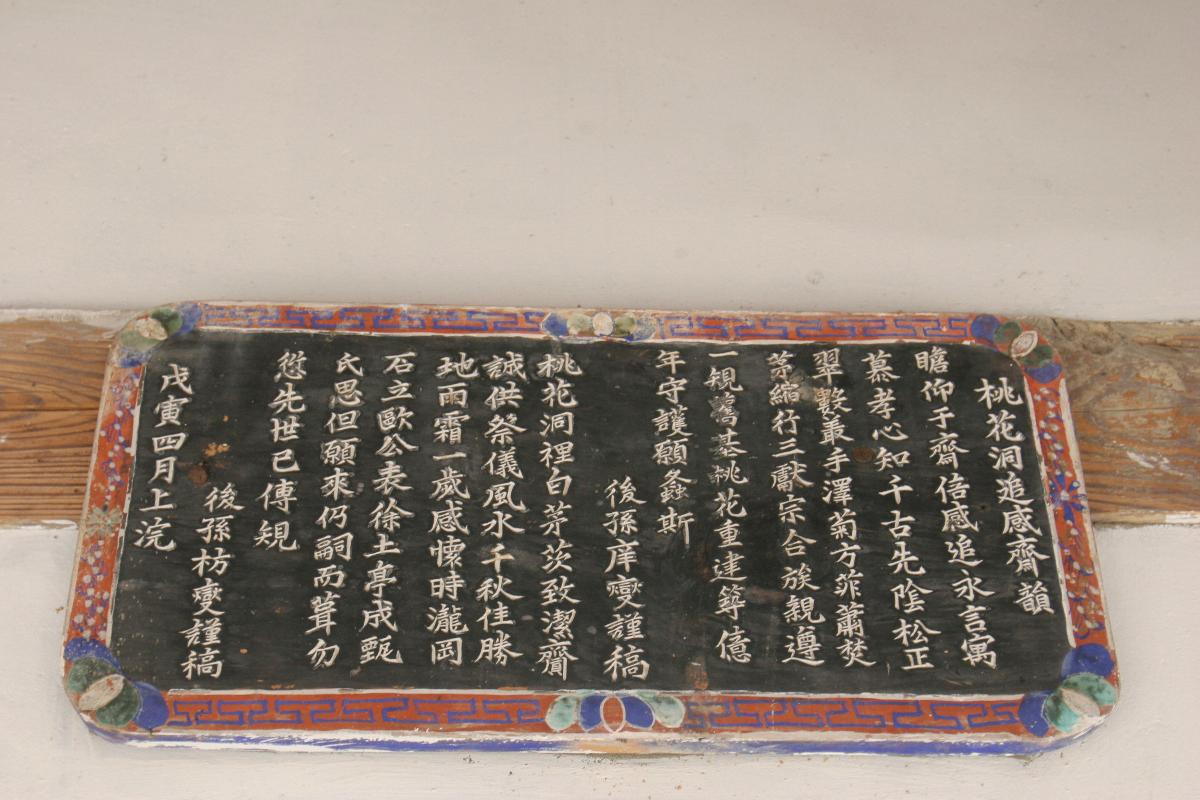 桃花洞追感齋韻
瞻仰于齋倍感追永言寓
慕孝心知千古先陰松正
翠數叢手澤菊方菲蕭焚
茅縮行三獻宗合族親遵
一規舊基桃花重建築億
年守護願螽斯
後孫庠燮謹稿
桃花洞裡白茅茨致潔齋
誠供祭儀風水千秋佳勝
地雨霜一歲感懷時瀧岡
石立歐公表徐土亭成甄
氏思但願來仍嗣而葺勿
愆先世已傳規
後孫枋燮謹稿
戊寅四月上浣